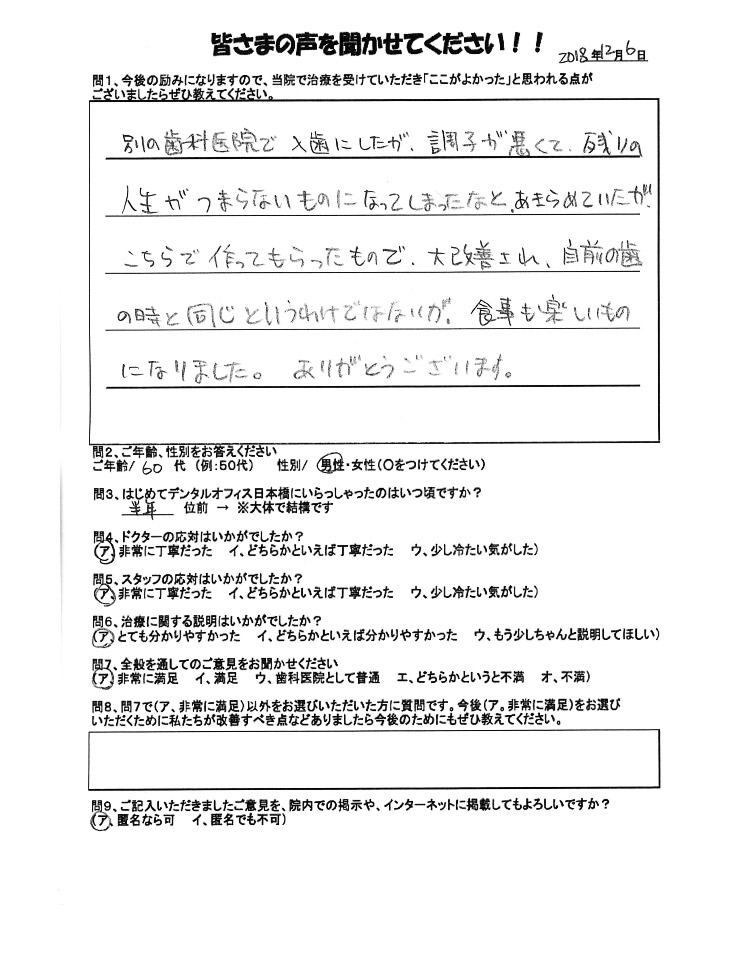 皆さまの声を聞かせてください！！
2018年12月6日
問1、今後の励みになりますので、当院で治療を受けていただき「ここがよかった」と思われる点が
ございましたらぜひ教えてください。
別の歯科医院で入歯にしたが、調子が悪くて、残りの
人生がつまらないものになってしまったなと、あきらめていたが、
こちらで作ってもらったもので、大改善され、自前の歯
の時と同じというわけではないが、食事も楽しいもの
になりました。ありがとうございます。
問2、ご年齢、性別をお答えください
ご年齢/ 60 代（例:50代） 性別/ 男性・女性（〇をつけてください）
問3、はじめてデンタルオフィス日本橋にいらっしゃったのはいつ頃ですか？
半年 位前 → ※大体で結構です
問4、ドクターの応対はいかがでしたか？
（ア、非常に丁寧だった イ、どちらかといえば丁寧だった ウ、少し冷たい気がした）
問5、スタッフの応対はいかがでしたか？
（ア、非常に丁寧だった イ、どちらかといえば丁寧だった ウ、少し冷たい気がした）
問6、治療に関する説明はいかがでしたか？
（ア、とても分かりやすかった イ、どちらかといえば分かりやすかった ウ、もう少しちゃんと説明してほしい）
問7、全般を通してのご意見をお聞かせください
（ア、非常に満足 イ、満足 ウ、歯科医院として普通 エ、どちらかというと不満 オ、不満）
問8、問7で（ア、非常に満足）以外をお選びいただいた方に質問です。今後（ア。非常に満足）をお選び
いただくために私たちが改善すべき点などありましたら今後のためにもぜひ教えてください。
問9、ご記入いただきましたご意見を、院内での掲示や、インターネットに掲載してもよろしいですか？
（ア、匿名なら可 イ、匿名でも不可）